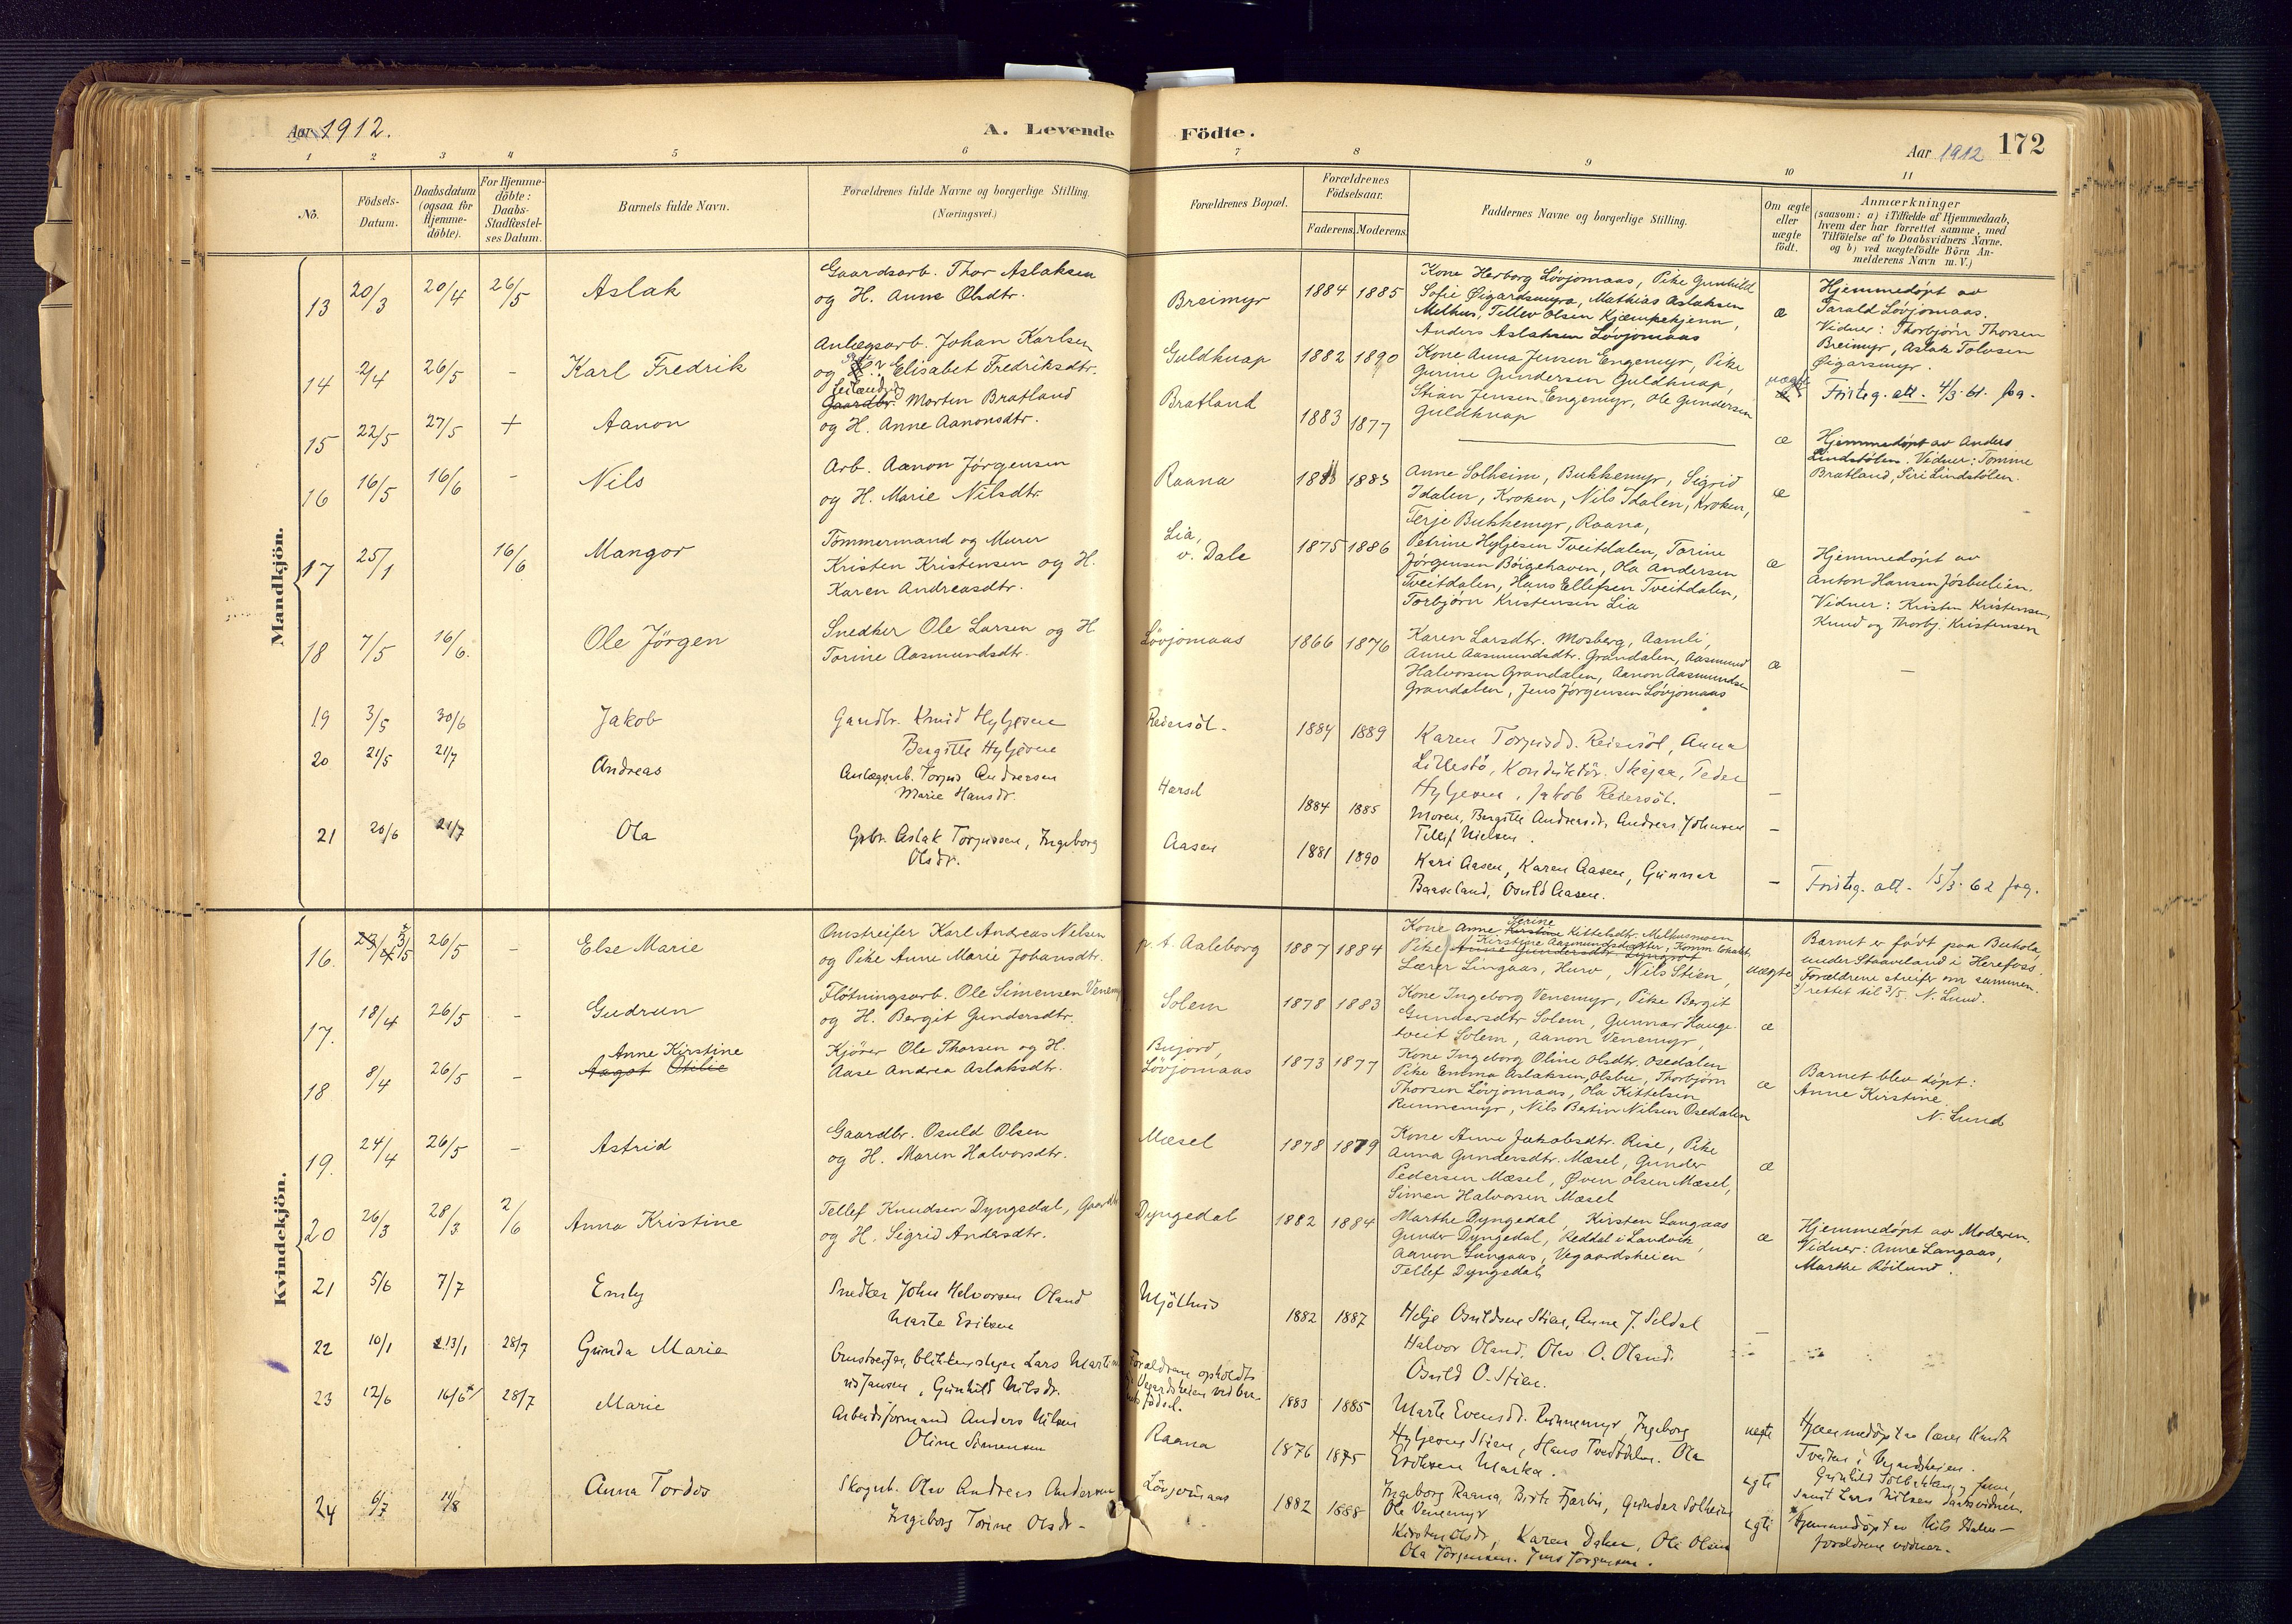 Aar 1912.
A. Levende
Födte.
Aar 1912 172
1 2 3 4 5 6 7 8 9 10 11
No.
Födsels-
Datum.
Daabsdatum
(ogsaa for
Hjemme-
döbte).
For Hjemme-
döbte:
Daabs-
Stadfæstel-
ses Datum.
Barnets fulde Navn.
Forældrenes fulde Navne og borgerlige Stilling.
(Næringsvei.)
Forældrenes Bopæl.
Forældrenes
Födselsaar.
Faderens. Moderens.
Faddernes Navne og borgerlige Stilling.
Om ægte
eller
uægte
födt.
Anmærkninger
(saasom: a) i Tilfælde af Hjemmedaab,
hvem der har forrettet samme, med
Tilföielse af to Daabsvidners Navne,
og b) ved uægtefödte Börn An-
melderens Navn m. V.)
Mandkjön.
13 20/3 20/4 26/5 Aslak
Gaardsarb. Thor Aslaksen
og H. Anne Olsdtr.
Breimyr 1884 1885
Kone Herborg Løvjomaas, Pike Gunhild
Sofie Øigardsmyra, Mathias Aslaksen
Melhus, Tellev Olsen Kjæmpekjenn,
Anders Aslaksen Løvjomaas
æ
Hjemmedøpt av
Tarald Løvjomaas.
Vidner: Thorbjörn Thorsen
Breimyr, Aslak Tolvsen
Øigarsmyr.
14 2/4 26/5 - Karl Fredrik
Anlægsarb. Johan Karlsen
og Elisabet Fredriksdtr.
Guldknap 1882 1890
Kone Anna Jensen Engemyr, Pike
Gurine Gundersen Guldknap,
Stian Jensen Engemyr, Ole Gundersen
Guldknap
uægte
Fristeg. att. 4/3-61.
15 22/5 27/5 + Aanon
Gaardbr. Morten Bratland
og H. Anne Aanonsdtr.
Bratland 1883 1877
æ
Hjemmedøpt av Anders
Lindstølen. Vidner: Tomine
Bratland, Siri Lindstölen.
16 16/5 16/6 - Nils
Arb. Aanon Jørgensen
og H. Marie Nilsdtr.
Raana 1883
Anne Solheim, Bukkemyr, Sigrid
Idalen, Kroken, Nils Idalen, Kroken,
Terje Bukkemyr, Raana,
æ
17 25/1 16/6 Mangor
Tömmermand og Murer
Kristen Kristensen og H.
Karen Andreasdtr.
Lia,
v. Dale 1875 1886
Petrine Hyljesen Tveitdalen, Torine
Jørgensen Børgehaven, Ola Andersen
Tveitdalen, Hans Ellefsen Tveitdalen,
Torbjörn Kristensen Lia
æ
Hjemmedøpt av
Anton Hansen Jösbulien.
Vidner: Kristen Kristensen,
Knud og Thorbj. Kristensen
18 7/5 16/6. Ole Jörgen
Snedker Ole Larsen og H.
Torine Aasmundsdtr.
Løvjomaas 1866 1876
Karen Larsdtr. Mosberg, Aamli,
Anne Aasmundsdtr. Grandalen, Aasmund
Halvorsen Grandalen, Aanon Aasmundsen
Grandalen, Jens Jørgensen Løvjomaas
æ -
19 3/5 30/6 Jakob
Gardbr. Knud Hyljesen
Bergitte Hyljesen
Reiersöl. 1884 1889
Karen Torjusd. Reiersöl, Anna
Lillestö, Konduktör. Skajaa, Peder
Hyljesen, Jakob Reiersöl.
-
20 21/5 21/7 Andreas
Anlægsarb. Torjus Andreasen
Marie Hansdr.
Hersel 1884 1885
Moren, Bergitte Andreasdr. Andreas Johnsen
Tellef Nielsen.
-
21 20/6 21/7 Ola
Grbr. Aslak Torjussen, Ingeborg
Olsdr.
Aasen 1881 1890
Kari Aasen, Karen Aasen, Gunnar
Baaseland, Osuld Aasen.
-
Fristeg. att. 15/3-62
Kvindekjön.
16. 3/5 26/5 - Else Marie
Omstreifer Karl Andreas Nilsen
og Pike Anne Marie Johansdtr.
p.t. Aaleborg 1887 1884
Kone Anne Serine Kittelsdtr. Melhusmoen
Pike Kirstine Aasmundsdatter, Komm. lokalet,
Lærer Lingaas, Nils Stien,
uægte
Barnet er født paa
under Staaveland i Herefoss.
Forældrene streifer om sammen.
rettet til 3/5. N. Lund.
17. 18/4 26/5 - Gudrun
Flötningsarb. Ole Simensen Venemyr
og H. Bergit Gundersdtr.
Solem 1878 1883
Kone Ingeborg Venemyr, Pike Bergit
Gundersdtr Solem, Gunnar Hauge-
tveit Solem, Aanon Venemyr,
æ
18 8/4 26/5 - Anne Kirstine
Aagot Otilie
Kjörer Ole Thorsen og H.
Aase Andrea Aslaksdtr.
Bujord,
Løvjomaas 1873 1877
Kone Ingeborg Oline Olsdtr. Osedalen
Pike Emma Aslaksen, Olsbu, Thorbjörn
Thorsen Løvjomaas, Ola Kittelsen
Runnemyr, Nils Bertin Nilsen Osedalen
æ
Barnet blev døpt:
Anne Kirstine
N. Lund
19. 24/4 26/5 - Astrid
Gaardbr. Osuld Olsen
og H. Maren Halvorsdtr.
Mæsel 1878 1879
Kone Anne Jakobsdtr. Rise, Pike
Anna Gundersdtr. Mæsel, Gunder
Pedersen Mæsel, Øven Olsen Mæsel,
Simen Halvorsen Mæsel
æ
20 26/3 28/3 2/6 Anna Kristine
Tellef Knudsen Dyngedal, Gaardbr
og H. Sigrid Andersdtr.
Dyngedal 1882 1884
Marthe Dyngedal, Kirsten Langaas
Gunder Dyngedal, Reddal i Landvik,
Aanon Langaas, Vegaardsheien
Tellef Dyngedal
æ
Hjemmedøpt av Moderen.
Vidner: Anne Langaas,
Marthe Röilund.
21 5/6 7/7 Emly
Snedker John Halvorsen Oland
Marte Eriksen
Mjölhus 1882 1887
Helje Osuldsen Stien, Anne J. Seldal
Halvor Oland. Olav O. Oland.
Osuld O. Stien.
-
22 10/1 13/1 28/7 Gunda Marie
Omstreifer, blikkenslager Lars Martin
Jansen, Gunhild Nilsdr.
Forældrene opholdt
i Vegardsheien ved bar-
nets födsel. 1883 1885
Marte Evensd. Runnemyr, Ingeborg
Hyljesen Stien, Hans Tveitdalen. Ola
Eriksen Marka.
uegte
Hjemmedöpt av lærer Knut
Tveiten i Vegardsheien.
Gunhild Solbakken,
samt Lars Nilsen daabsvidner.
23 12/6 16/6 28/7 Marie
Arbeidsformand Anders Nilsen
Oline Simensen
Raana 1876 1875
Ingeborg Raana, Birte Fjærbu, Gunder Solheim
Ole Venemyr
egte
Hjemmedöpt av Nils Dalen -
forældrene vidner.
24 6/7 11/8 Anna Tordos
Skogarb. Olav Andreas Andersen
Ingeborg Torine Olsdr -
Løvjomaas 1882 1888
Kirsten Olsdr, Karen Dalen, Ole Olsen
Ola Jörgensen. Jens Jörgensen.
egte